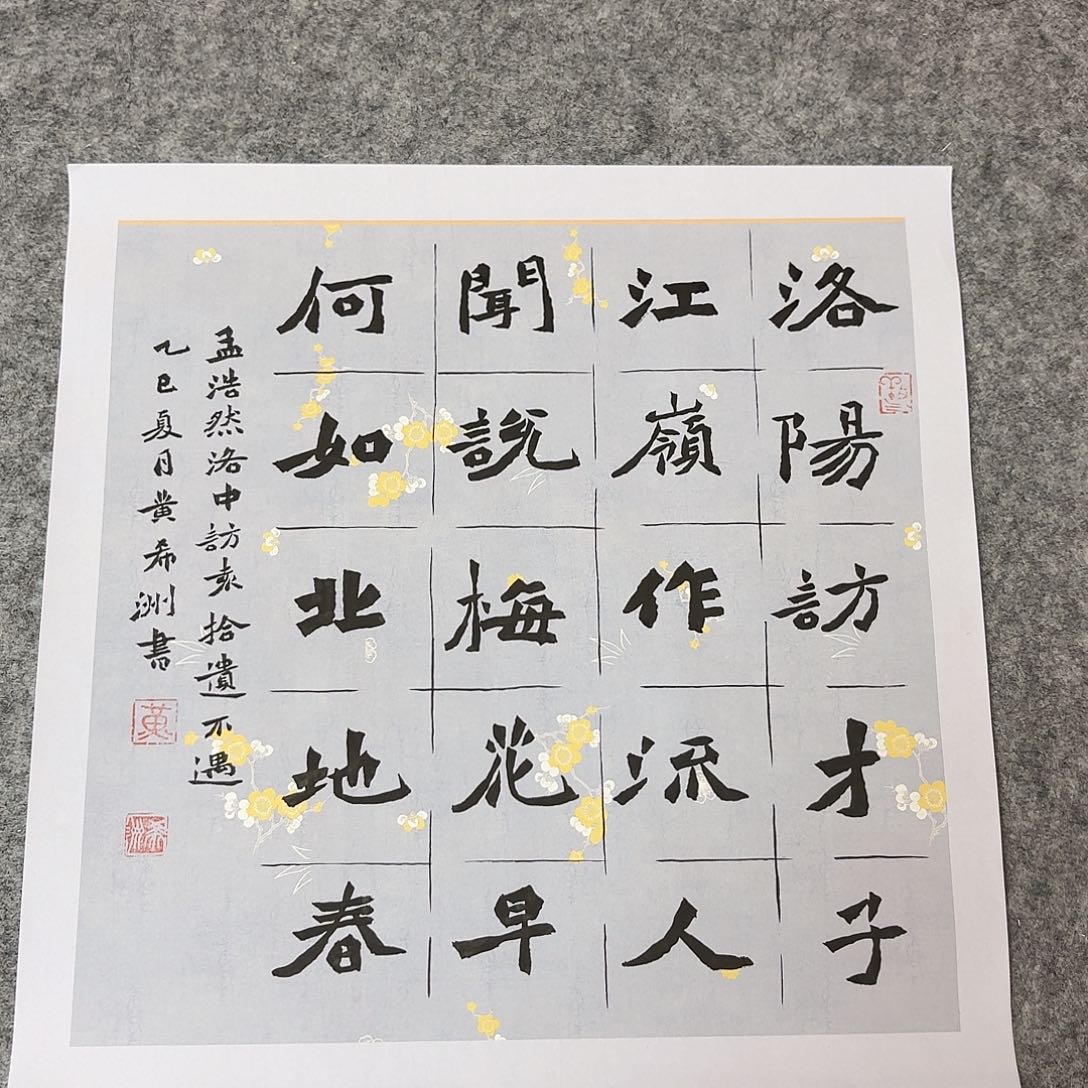 洛陽訪才子
江嶺作流人
聞說梅花早
何如北地春
孟浩然洛中訪袁拾遺不遇
乙巳夏月黄希洲書
黄
希洲